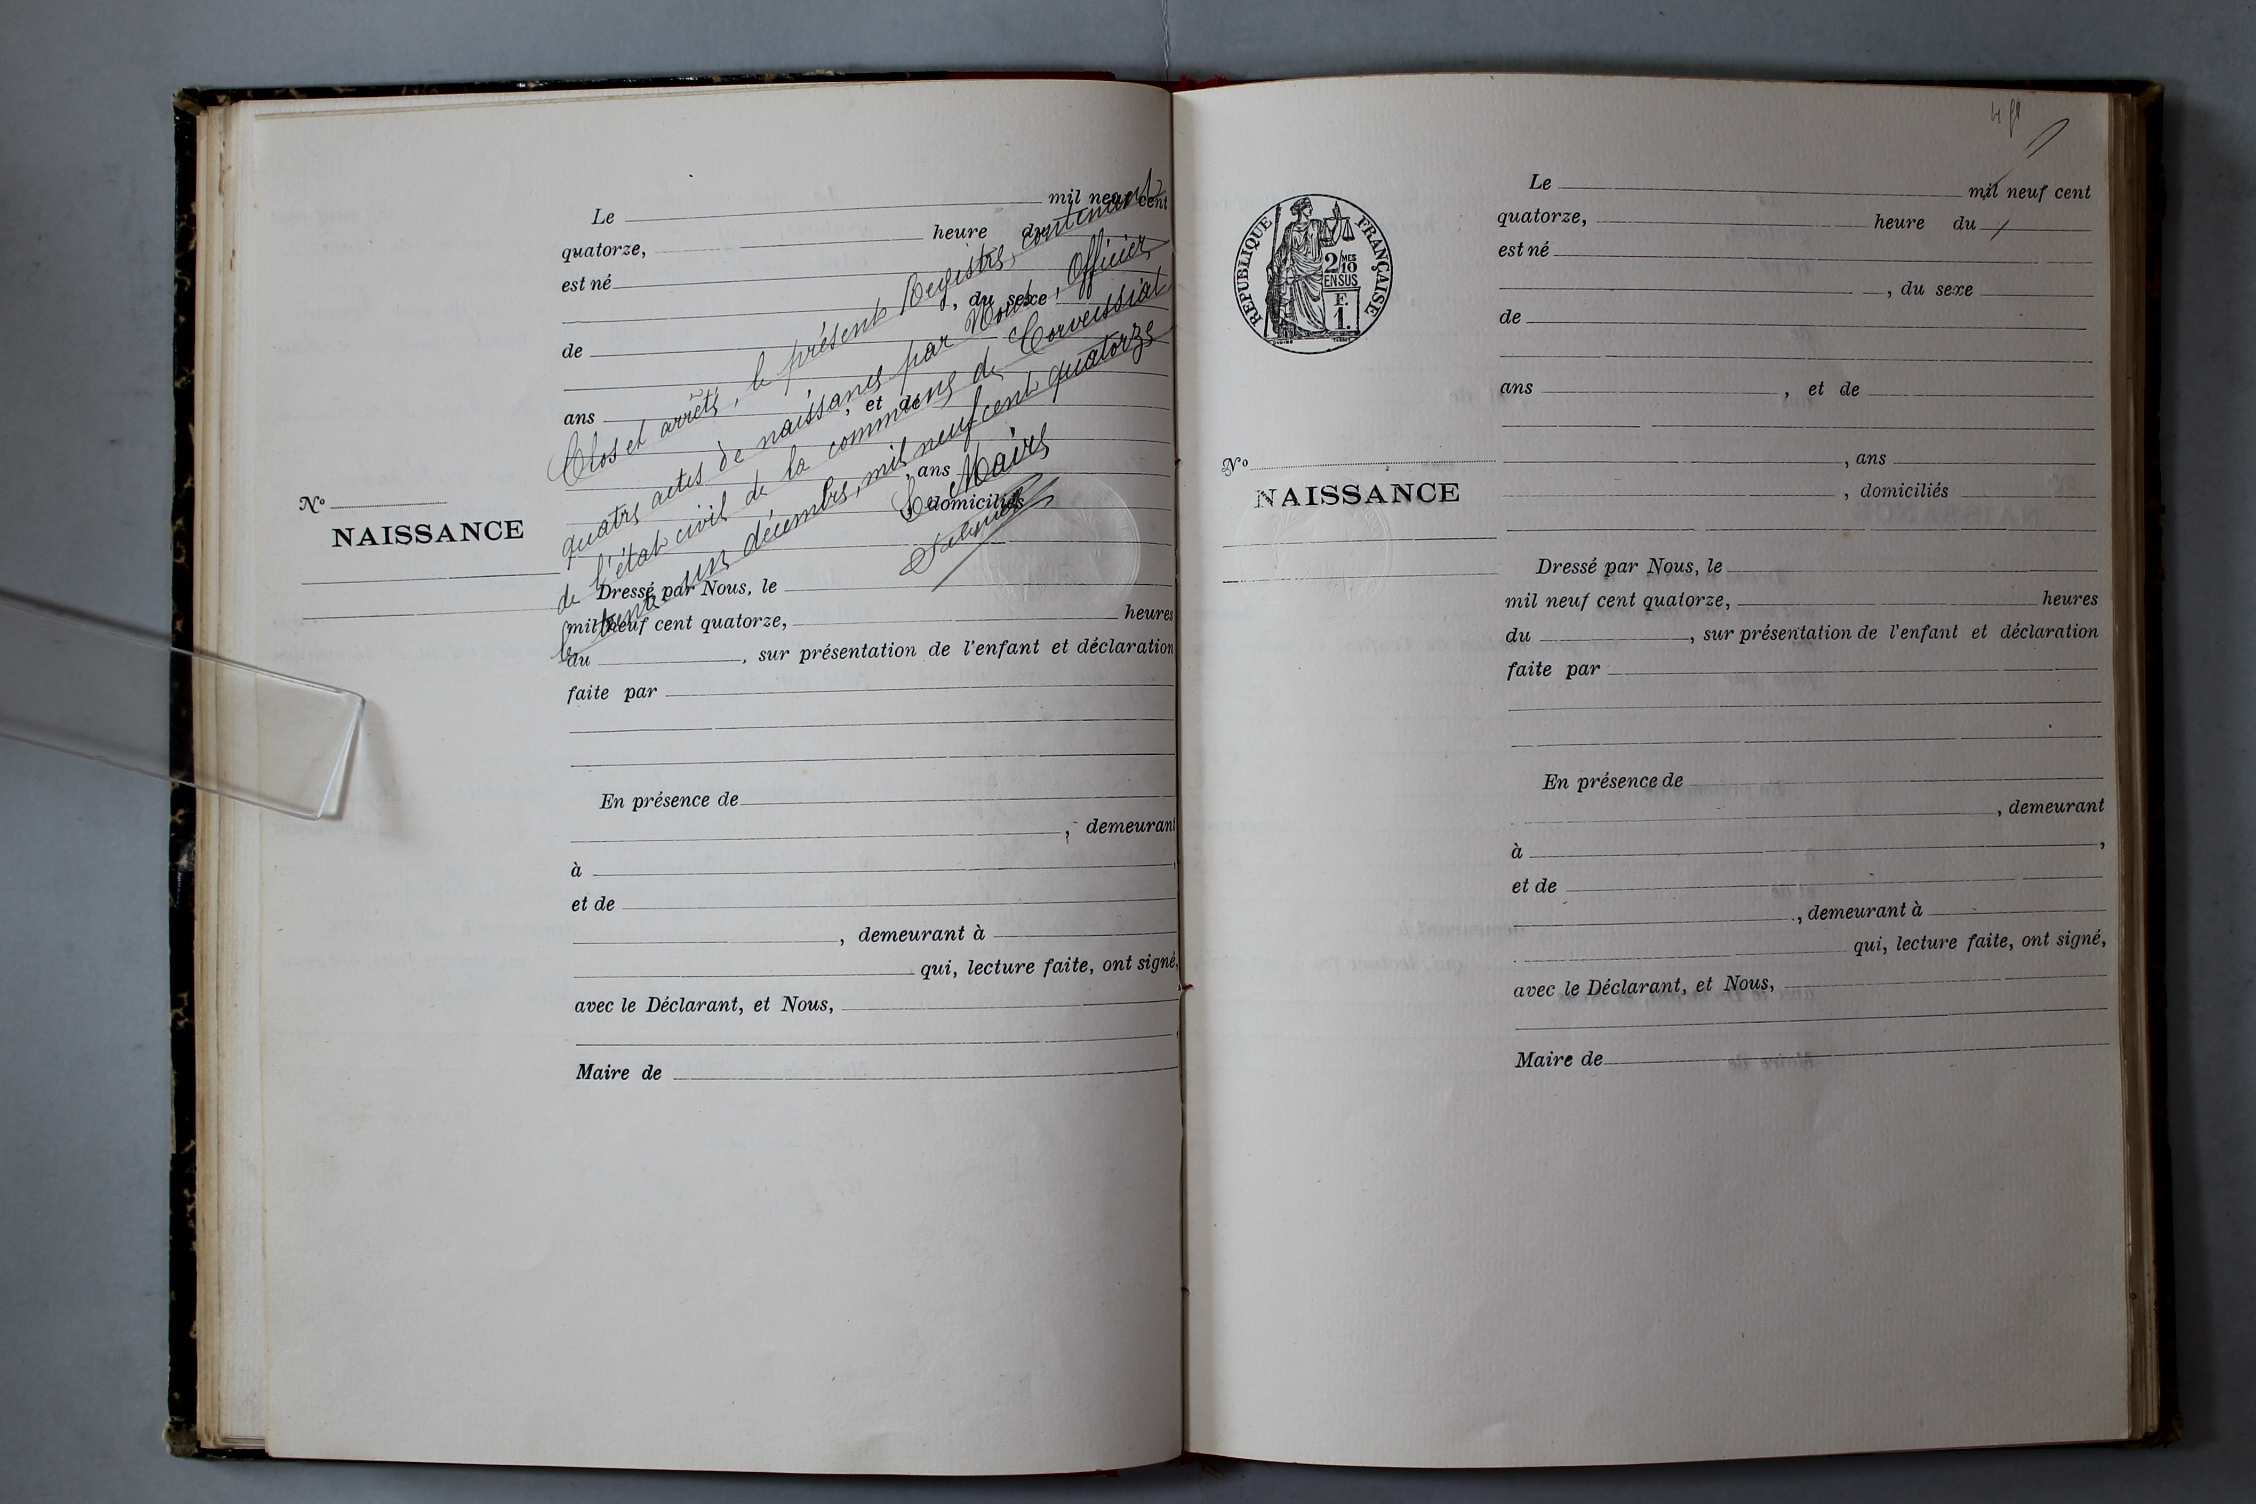 Le mil neuf cent
quatorze, heure du
est né
, du sexe
de
ans , et de
, ans
, domiciliés
Nº
NAISSANCE
Dressé par Nous, le
mil neuf cent quatorze, heures
du , sur présentation de l'enfant et déclaration
faite par
En présence de
, demeurant
à
et de
, demeurant à
qui, lecture faite, ont signé,
avec le Déclarant, et Nous,
Maire de
Clos et arrêté, le présent Registre, contenant
quatre actes de naissances par Nous, Officier
de l'état civil de la commune de Corveissiat
le trente un décembre, mil neuf cent quatorze
Le Maire
Le mil neuf cent
quatorze, heure du
est né
, du sexe
de
ans , et de
, ans
, domiciliés
RÉPUBLIQUE FRANÇAISE
2/MES
10
EN SUS
F.
1.
Nº
NAISSANCE
Dressé par Nous, le
mil neuf cent quatorze, heures
du , sur présentation de l'enfant et déclaration
faite par
En présence de
, demeurant
à ,
et de
, demeurant à
qui, lecture faite, ont signé,
avec le Déclarant, et Nous,
Maire de